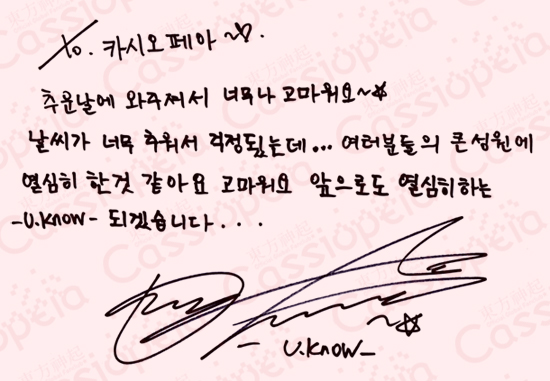 To. 카시오페아~♡.
추운날에 와주셔서 너무나 고마워요~☆
날씨가 너무 추워서 걱정됬는데... 여러분들의 큰성원에
열심히 한것 같아요 고마워요 앞으로도 열심히하는
-U.Know- 되겠습니다...
~☆
- U.Know -
東方神起
Cassiopeia